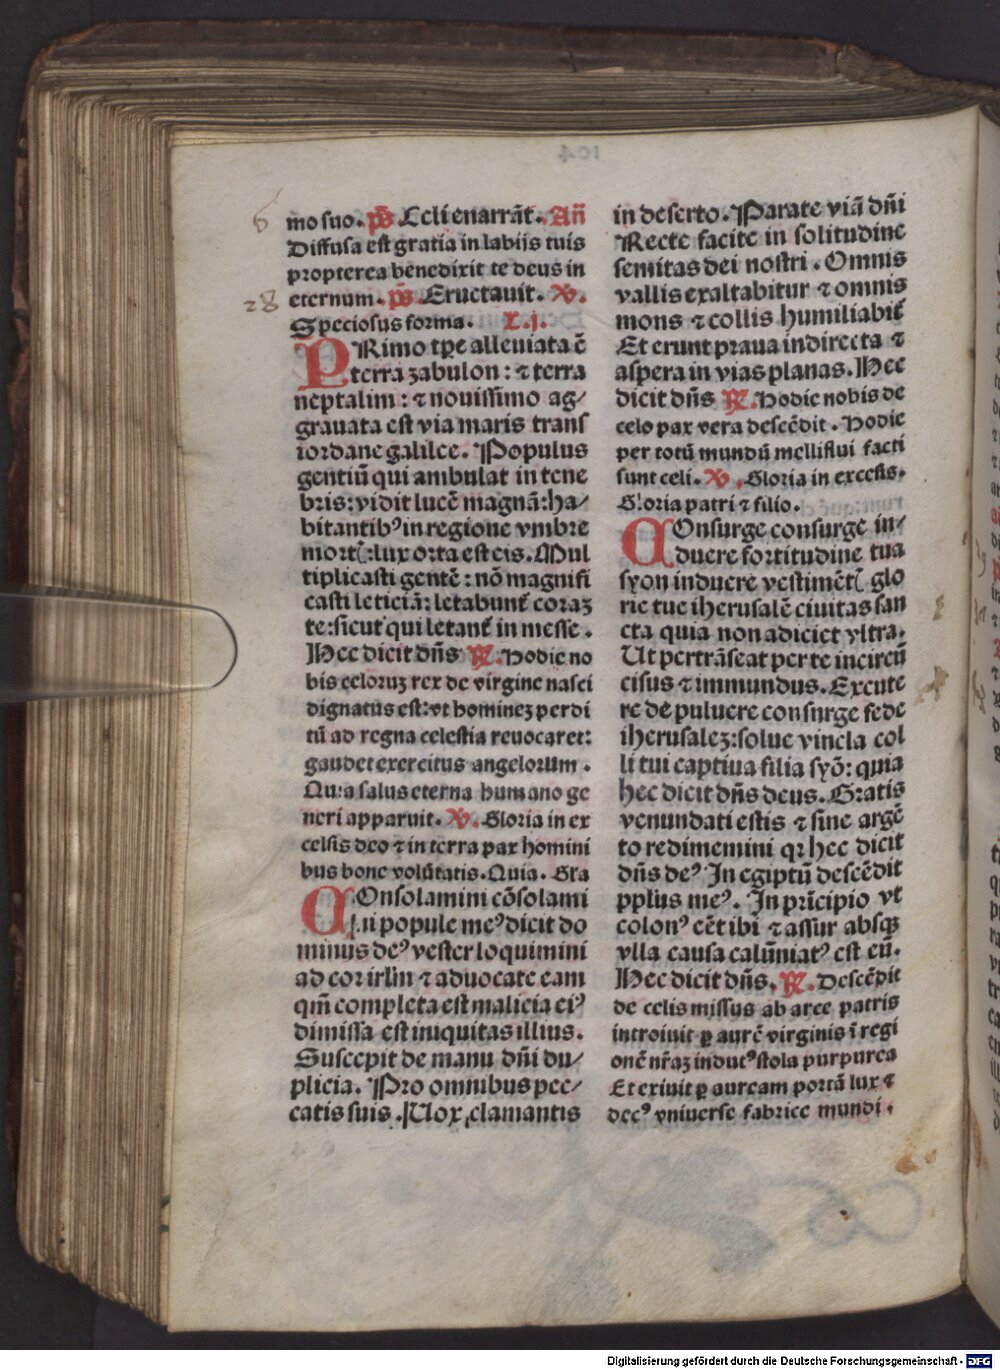 mo suo. p̄s Celi enarrāt. Añ
Diffusa est gratia in labijs tuis
propterea benedixit te deus in
eternum. p̄s. Eructauit. V.
Speciosus forma. L. j.
PRimo tp̄e alleuiata ē
terra zabulon: ⁊ terra
neptalim: ⁊ nouissimo ag⸗
grauata est via maris trans
iordane galilee. Populus
gentiū qui ambulat in tene
bris: vidit lucē magnā: ha⸗
bitantibꝰ in regione vmbre
mort᷒: lux orta est eis. Mul
tiplicasti gentē: nō magnifi
casti leticiā: letabunt᷑ coraꝫ
te: sicut qui letant᷑ in messe.
Hec dicit dn̄s R. Hodie no
bis celoruꝫ rex de virgine nasci
dignatus est: vt homineꝫ perdi
tū ad regna celestia reuocaret:
gaudet exercitus angelorum.
Quia salus eterna humano ge
neri apparuit. V. Gloria in ex
celsis deo ⁊ in terra pax homini
bus bone volūtatis. Quia. Gra
COnsolamini cōsolami
ni popule meꝰ dicit do
minus deꝰ vester loquimini
ad cor irlm̄ ⁊ aduocate eam
qm̄ completa est malicia eiꝰ
dimissa est iniquitas illius.
Suscepit de manu dn̄i du⸗
plicia. Pro omnibus pec⸗
catis suis. Uox clamantis
in deserto. Parate viā dn̄i
Recte facite in solitudine
semitas dei nostri. Omnis
vallis exaltabitur ⁊ omnis
mons ⁊ collis humiliabit᷑
Et erunt praua in directa ⁊
aspera in vias planas. Hec
dicit dn̄s R. Hodie nobis de
celo pax vera descēdit. Hodie
per totū mundū melliflui facti
sunt celi. V. Gloria in excelsis.
Gloria patri ⁊ filio.
COnsurge consurge in⸗
duere fortitudine tua
syon induere vestimēt᷒ glo
rie tue iherusalē ciuitas san
cta quia non adiciet vltra.
Ut pertrāseat per te incircū
cisus ⁊ immundus. Excute
re de puluere consurge sede
iherusaleꝫ: solue vincla col
li tui captiua filia syō: quia
hec dicit dn̄s deus. Gratis
venundati estis ⁊ sine argē
to redimemini qꝛ hec dicit
dn̄s deꝰ In egiptū descēdit
pplūs meꝰ. In prīcipio vt
colonꝰ eēt ibi ⁊ assur absqꝫ
vlla causa calūniatꝰ est eū.
Hec dicit dn̄s. R. Descēdit
de celis missus ab arce patris
introiuit ꝑ aurē virginis ī regi
onē nr̄aꝫ indutꝰ stola purpurea
Et exiuit ꝑ auream portā lux ⁊
decꝰ vniuerse fabrice mundi.
6
28
104
Digitalisierung gefördert durch die Deutsche Forschungsgemeinschaft - DFG